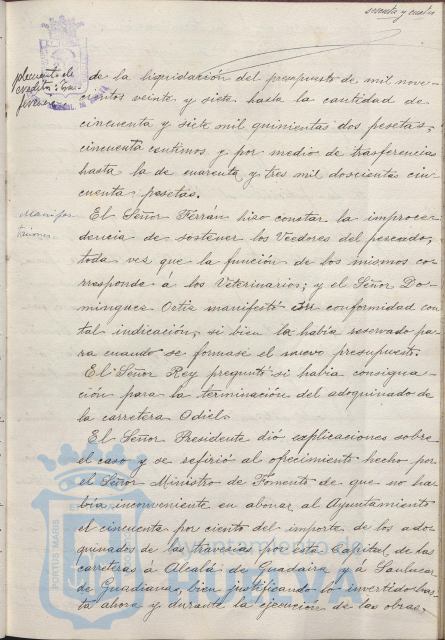 sesenta y cuatro
plemento de
creditos y tras
ferencias
de la liquidación del presupuesto de mil nove-
cientos veinte y siete hasta la cantidad de
cincuenta y siete mil quinientas dos pesetas,
cincuenta centimos y por medio de trasferencias
hasta la de cuarenta y tres mil doscientas cin-
cuenta pesetas.
Manifes
taciones
El Señor Terrán hizo constar la improce-
dencia de sostener los Veedores del pescado,
toda vez que la función de los mismos co-
rresponde á los Veterinarios; y el Señor Do-
minguez Ortiz manifestó su conformidad con
tal indicación, si bien la habia reservado pa-
ra cuando se formase el nuevo presupuesto.
El Señor Rey preguntó si habia consigna-
ción para la terminación del adoquinado de
la carretera Odiel.
El Señor Presidente dió explicaciones sobre
el caso y se refirió al ofrecimiento hecho por
el Señor Ministro de Fomento de que no ha-
bia inconveniente en abonar al Ayuntamiento
el cincuenta por ciento del importe de los ado-
quinados de las travesias por esta Capital de las
carreteras á Alcalá de Guadaira y á Sanlucar
de Guadiana, bien justificando lo invertido has-
ta ahora y durante la ejecución de las obras.
PORTUS MARIS
Ayuntamiento de
HUELVA